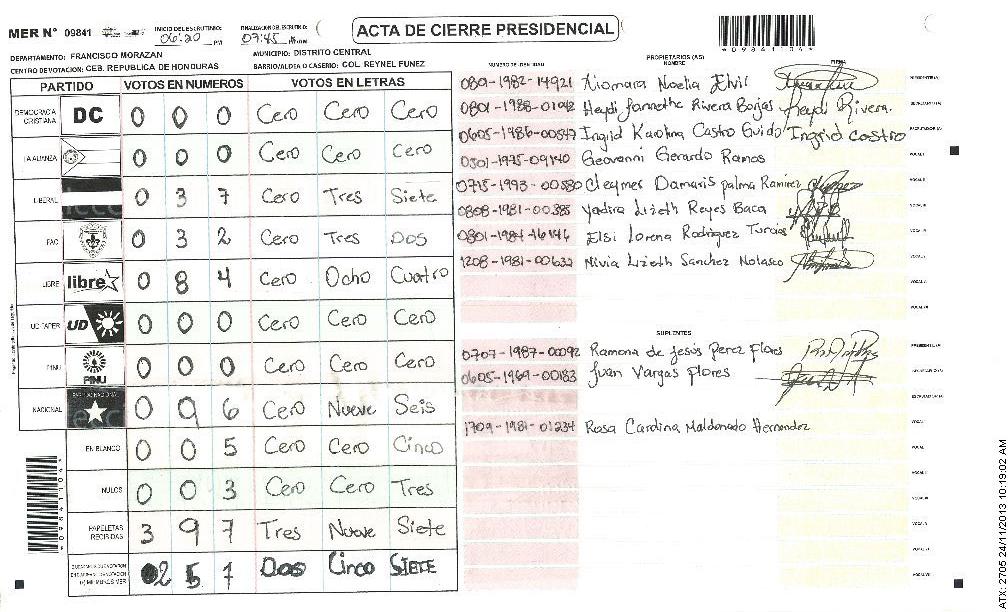 ACTA DE CIERRE PRESIDENCIAL
MER N° 09841
INICIO DEL ESCRUTINIO: 06:20 PM
FINALIZACION DEL ESCRUTINIO: 07:45
*09841104*
DEPARTAMENTO: FRANCISCO MORAZAN
MUNICIPIO: DISTRITO CENTRAL
CENTRO DE VOTACION: CEB. REPUBLICA DE HONDURAS
BARRIO/ALDEA O CASERIO: COL REYNEL FUNEZ
PARTIDO VOTOS EN NUMEROS VOTOS EN LETRAS
DEMOCRACIA CRISTIANA DC 0 0 0 Cero Cero Cero
LA ALIANZA 0 0 0 Cero Cero Cero
LIBERAL 0 3 7 Cero Tres Siete
PAC 0 3 2 Cero Tres Dos
LIBRE libre 0 8 4 Cero Ocho Cuatro
UD FAPER UD 0 0 0 Cero Cero Cero
PINU PINU 0 0 0 Cero Cero Cero
NACIONAL 0 9 6 Cero Nueve Seis
EN BLANCO 0 0 5 Cero Cero Cinco
NULOS 0 0 3 Cero Cero Tres
PAPELETAS RECIBIDAS 3 9 7 Tres Nueve Siete
2 5 7 Dos Cinco SIETE
NUMERO DE IDENTIDAD
PROPIETARIOS (AS)
NOMBRE
FIRMA
0801-1982-14921 Xiomara Noelia Elvil
0801-1988-01042 Heydi Jannethe Rivera Borjas Heydi Rivera.
0605-1986-00547 Ingrid Karolina Castro Guido Ingrid castro
0301-1975-09140 Geovanni Gerardo Ramos
0715-1993-00580 Cleymer Damaris palma Ramirez
0808-1981-00385 Yadira Lizeth Reyes Baca
0801-1984-16146 Elsi Lorena Rodriguez Turcios
1208-1981-00632 Nivia Lizeth Sanchez Nolasco
SUPLENTES
0707-1987-00092 Ramona de Jesús Perez Flores
0605-1969-00183 Juan Vargas Flores
1709-1981-01234 Rosa Cardina Maldonado Hernandez
ATX: 2705 24/11/2013 10:19:02 AM